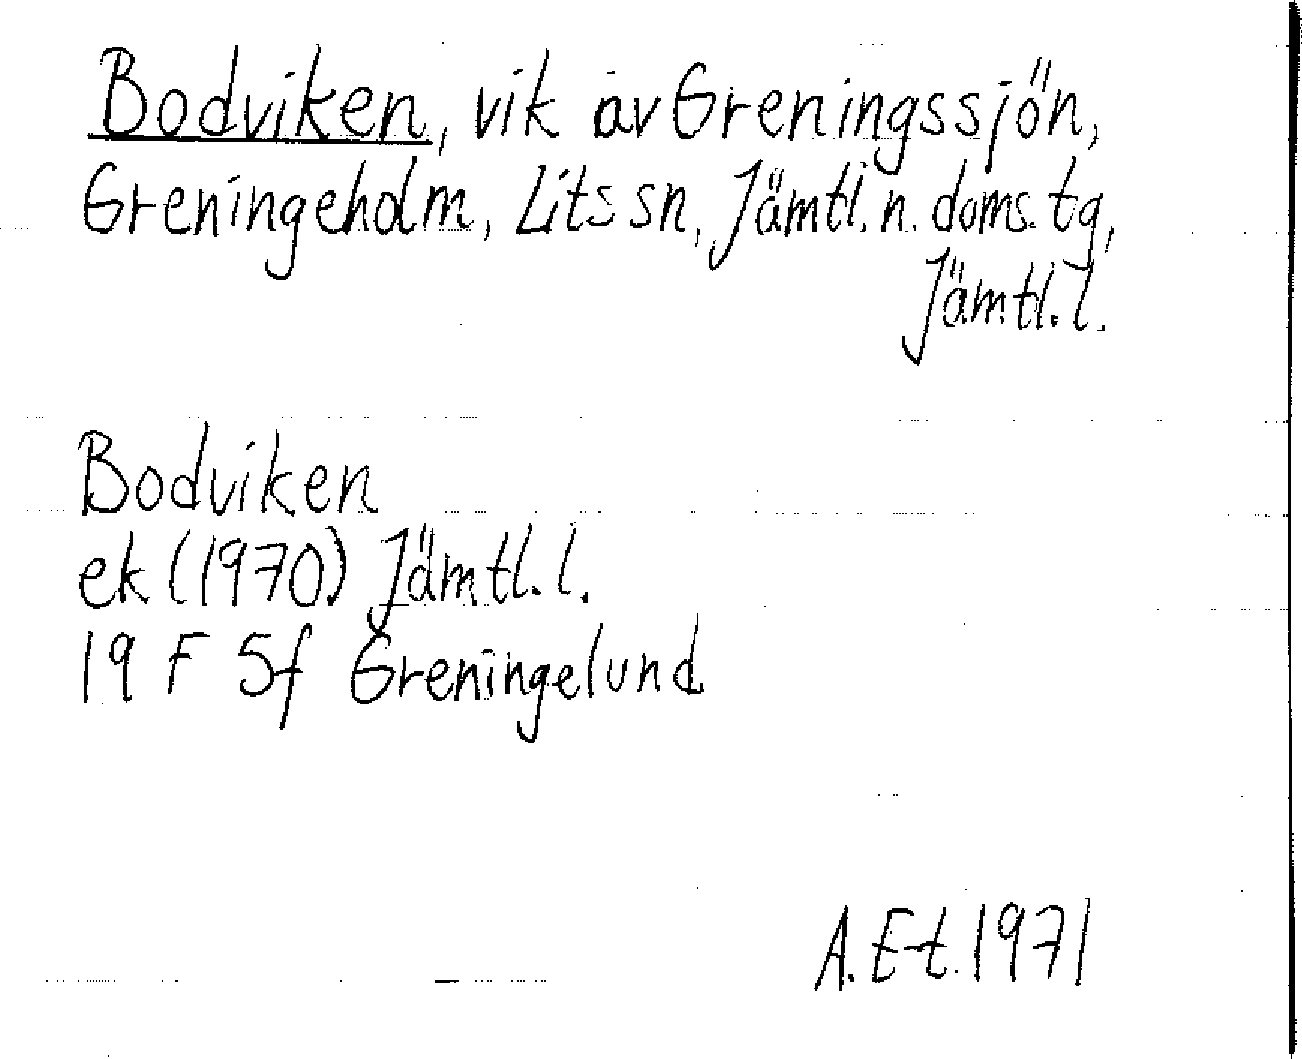 Bodviken, vik av Greningssjön,
Greningeholm, Lits sn, Jämtl. n. doms. tg,
Jämtl. l.
Bodviken
ek (1970) Jämtl. l.
19 F 5f Greningelund
A. E-t. 1971